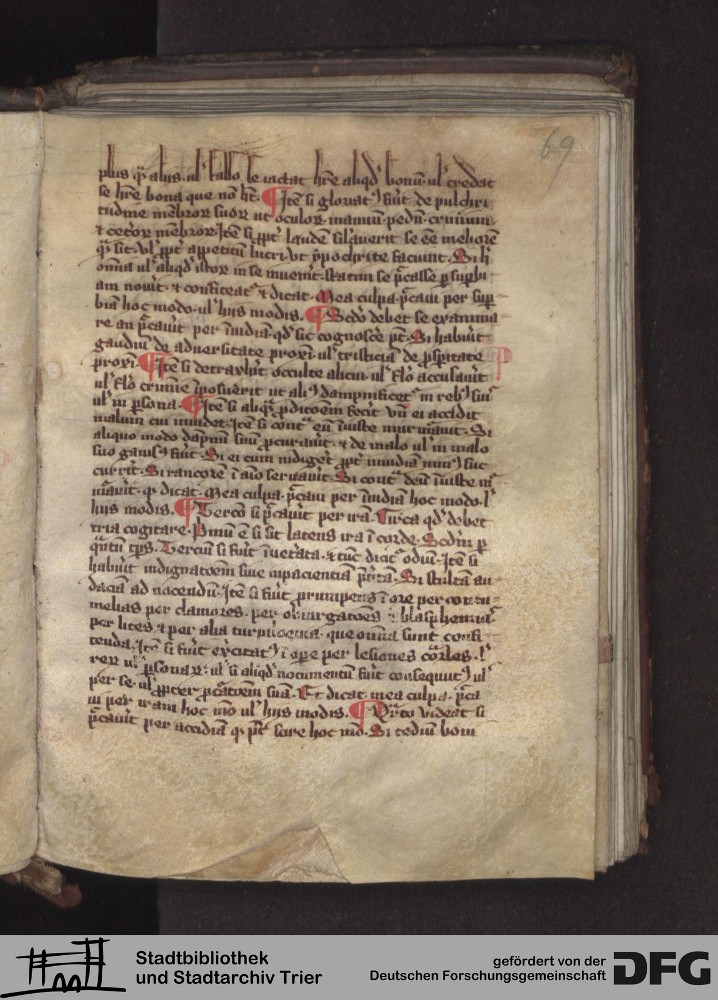 69
plus qͣ alius. ul' fallo se iactat hr̄e aliqd̓ bonū. ul' credat
se hr̄e bona que nō hꝫ. ¶ Itē si gloriatꝰ fūit de pulchri
tudine mēbroꝝ suoꝝ ut oculoꝝ. manuū. pedū. criniū
⁊ cet̓oꝝ mēbroꝝ. Itē si ꝓpt̓ laudē se ēē meliorē
qͣ sit. Vl' ꝓpt̓ appetitū lucri. Si h̓
omīa ul' aliqd̓ istoꝝ in se inuen̓it. statim se pͨcasse ꝑ suꝑbi
am nou̓it. ⁊ confiteatͬ ⁊ dicat. Mea culpa. pͨcaui per suꝑ
biā hoc modo. ul' hijs modis. ¶ Scd̓o debet se examina
re an pͨcau̓it per inuidiā. qd̓ sic cognosc̓e pōt. Si habuit
gaudiū de aduersitate proxī. ul' tristiciā de ꝓsꝑitate
proxī. ¶ Itē si detraxīt occulte alicui. ul' fl̓o accusau̓it
ul' fl̓o crimīe īposuerit ut aliꝰ dampnificetͬ in rebꝰ suis
ul' in ꝑsona. ¶ Itē si aliqͣ ꝑdicōem fecit vn̄ ei accidit
malum cui inuidet. Itē si contͣ eū īiuste murmͣuit. Si
aliquo modo dāpnū suū ꝓcurauit. ⁊ de malo ul' in malo
suo gauisꝰ fūit. Si ei cum indiget̓ ꝓpt̓ inuidiā nō suc
currit. Si rancorē ī aīo seruauit. Si contͣ deū īiuste mͬ
mͣuit. qͦ dicat. Mea culpa. pͨcaui per inuidiā hoc modo. ul'
hijs modis. ¶ Tercō si pͨcauit per irā. Circa qd̓ debet
tria cogitare. Primū ē si sit latens ira ī corde. Scd̓m ꝑ
qͣntū tp̄s. Terciū si fūit īuet̓ata. ⁊ tūc dicitͬ odiū. Itē si
habuit indignatōem siue inpacientiā. Si stultā au
daciā ad nocendū. Itē si fūit prūmpens ī ore per contu
melias per clamores. per obiurgatōes. ⁊ blasphemias
per lites. ⁊ per alia turpiloquia. que omīa sunt confi
tenda. Itē si fūit excitatꝰ ī oꝑe per lesiones
reꝝ ul' ꝑsonaꝝ. ul' si aliqd̓ nocumentū fūit consequutꝰ ul'
per se. ul' ꝓpter suā. Et dicat. mea culpa. pͨca
ui per iram hoc mō ul' hijs modis. ¶ Qͣrto videat si
pͨcauit per accidiā qͦ pōt scire hoc mō. Si tediū boni
Stadtbibliothek
und Stadtarchiv Trier
gefördert von der
Deutschen Forschungsgemeinschaft
DFG